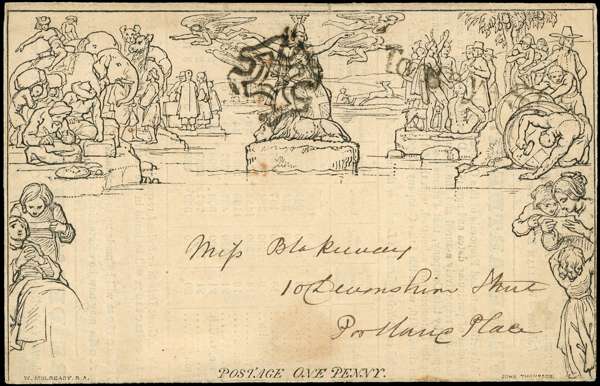 Miss Blakeway
10 Devonshire Street
Portland Place
W. MULREADY. R.A.
POSTAGE ONE PENNY.
JOHN THOMPSON